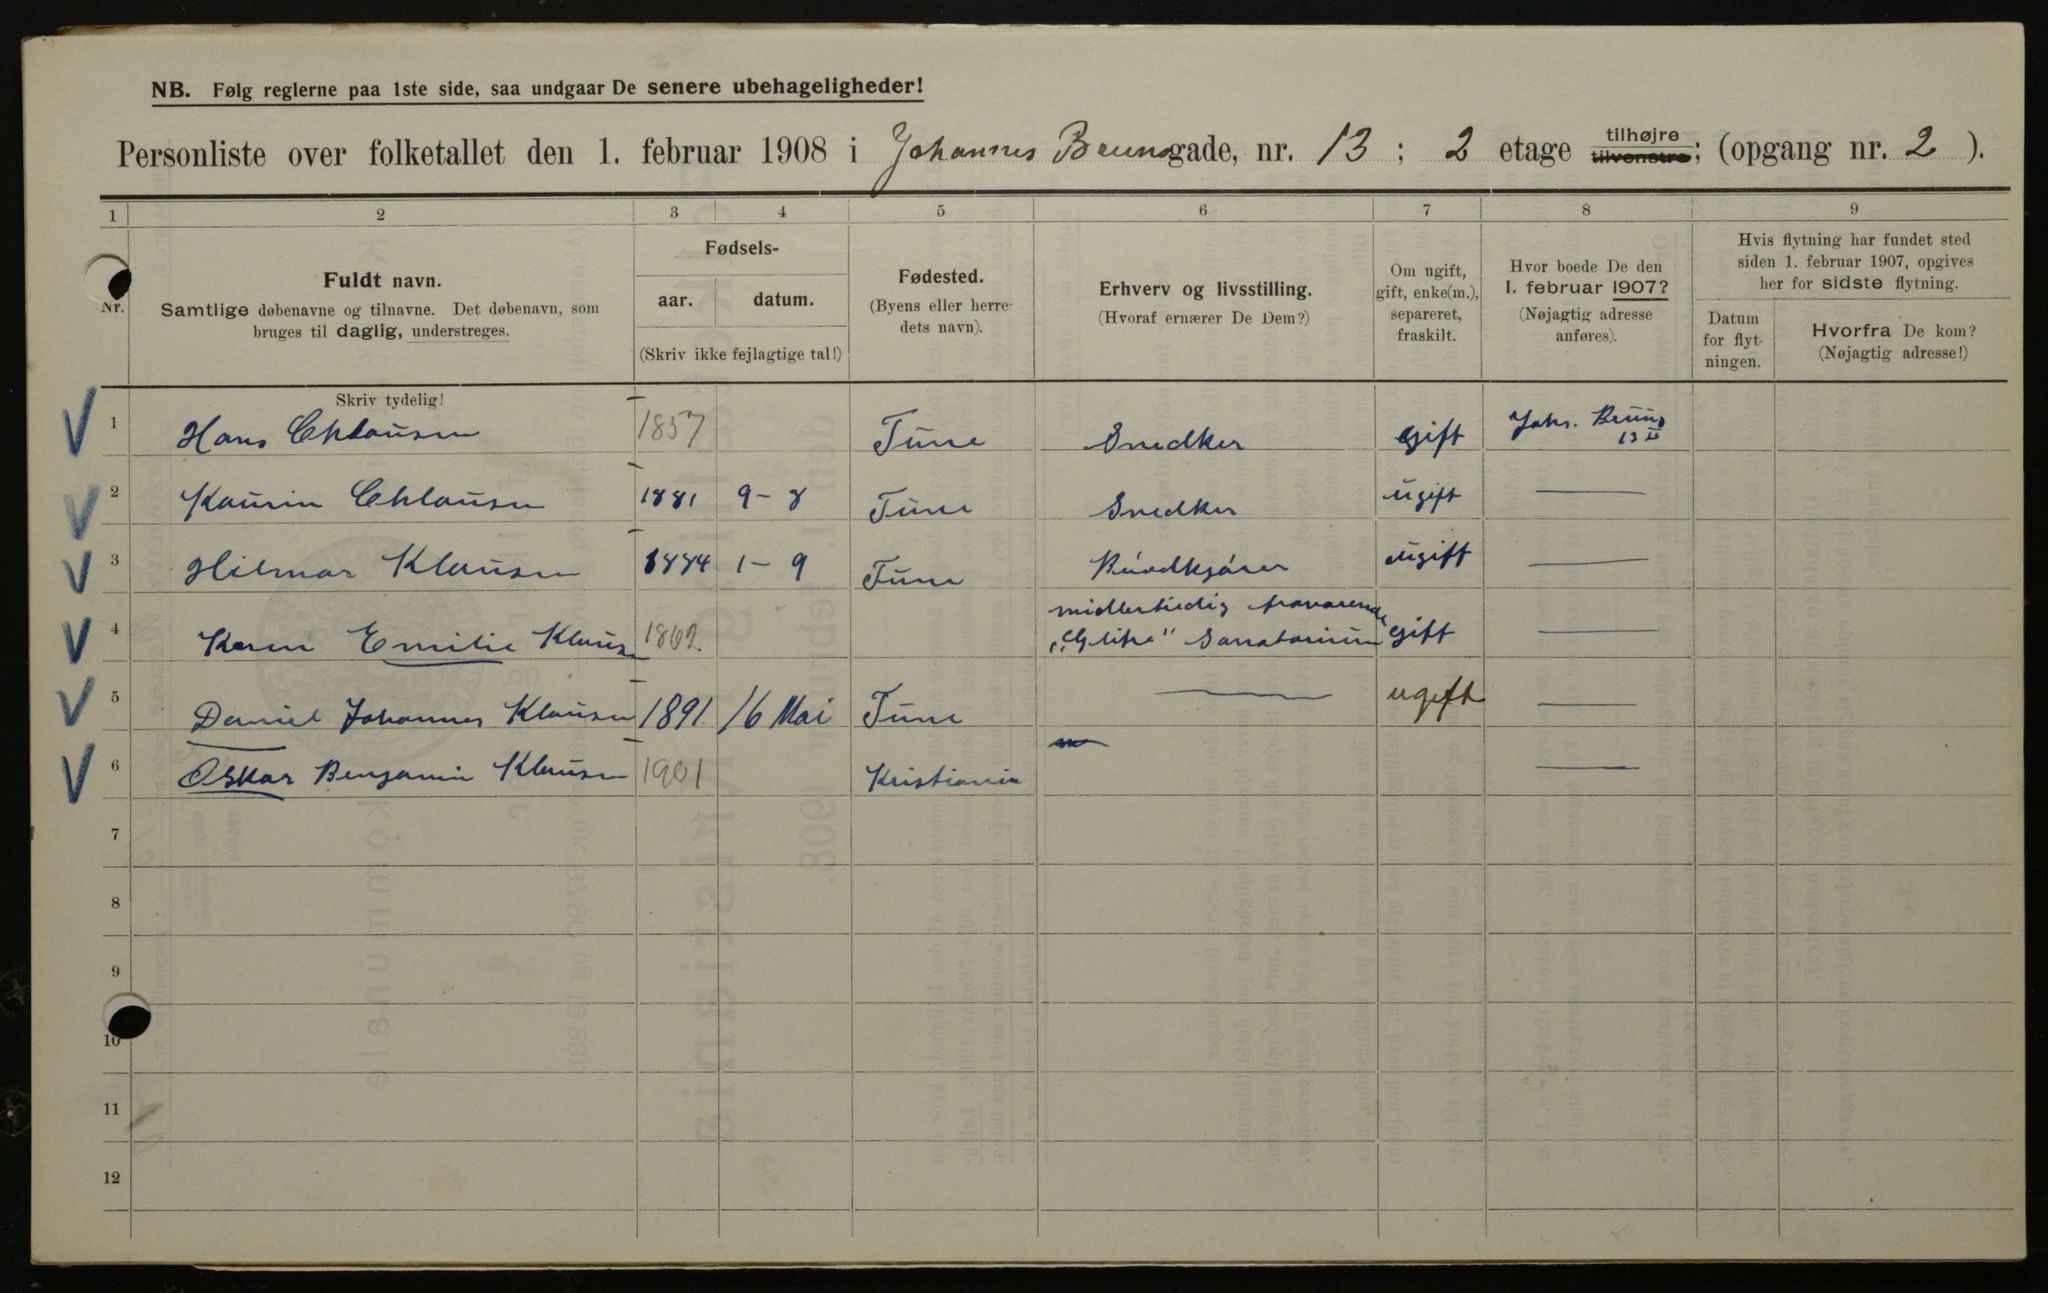 NB. Følg reglerne paa 1ste side, saa undgaar De senere ubehageligheder!
Personliste over folketallet den 1. februar 1908 i Johannes Brunsgade, nr. 13 ; 2 etage tilhøjre tilvenstre; (opgang nr. 2 ).
1 2 3 4 5 6 7 8 9
Nr.
Fuldt navn.
Samtlige døbenavne og tilnavne. Det døbenavn, som
bruges til daglig, understreges.
Fødsels-
aar. datum.
(Skriv ikke fejlagtige tal!)
Fødested.
(Byens eller herre-
dets navn).
Erhverv og livsstilling.
(Hvoraf ernærer De Dem?)
Om ugift,
gift, enke(m.),
separeret,
fraskilt.
Hvor boede De den
1. februar 1907?
(Nøjagtig adresse
anføres).
Hvis flytning har fundet sted
siden 1. februar 1907, opgives
her for sidste flytning.
Datum
for flyt-
ningen.
Hvorfra De kom?
(Nøjagtig adresse!)
Skriv tydelig!
1 Hans Chlausen 1857 Tune Snedker gift Johs. Bruns
13 II
2 Kaurin Chlausen 1881 9-8 Tune Snedker ugift
3 Hilmar Klausen 1884 1-9 Tune ugift
midlertidig fraværende
4 Karen Emilie Klausen 1862 Sanatorium gift
5 Daniel Johannes Klausen 1891 16 Mai Tune ugift
6 Oskar Benjamin Klausen 1901 Kristiania
7
8
9
10
11
12